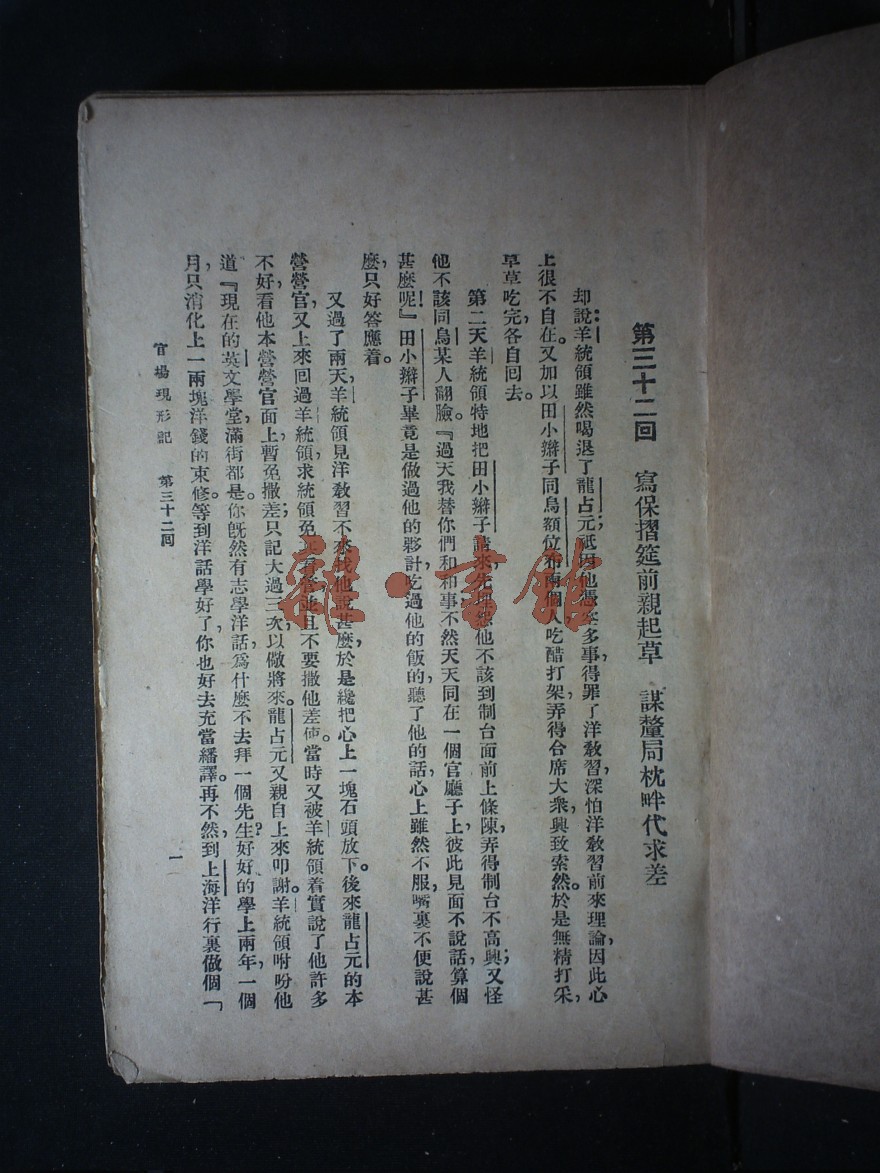 第三十二回　寫保摺筵前親起草　謀釐局枕畔代求差
却說：羊統領雖然喝退了龍占元；祗因他憑空多事，得罪了洋敎習，深怕洋敎習前來理論，因此心
上很不自在。又加以田小辮子同烏額拉布兩個人吃醋打架，弄得合席大衆，興致索然。於是無精打采，
草草吃完，各自回去。
第二天羊統領特地把田小辮子請來，先埋怨他不該到制台面前上條陳，弄得制台不高興；又怪
他不該同烏某人翻臉。『過天我替你們和和事，不然天天同在一個官廳子上，彼此見面不說話，算個
甚麼呢！』田小辮子畢竟是做過他的夥計，吃過他的飯的，聽了他的話，心上雖然不服，嘴裏不便說甚
麼，只好答應着。
又過了兩天，羊統領見洋敎習不來找他說甚麼，於是纔把心上一塊石頭放下。後來龍占元的本
營營官，又上來回過羊統領，求統領免其看管，並且不要撤他差使。當時又被羊統領着實說了他許多
不好，看他本營營官面上，暫免撤差；只記大過三次，以儆將來。龍占元又親自上來叩謝。羊統領吩吩他
道：『現在的英文學堂，滿街都是。你旣然有志學洋話，爲什麼不去拜一個先生？好好的學上兩年，一個
月只消化上一兩塊洋錢的束修。等到洋話學好了，你也好去充當繙譯。再不然，到上海洋行裏做個「
官場現形記　第三十二回　一
龍・書館